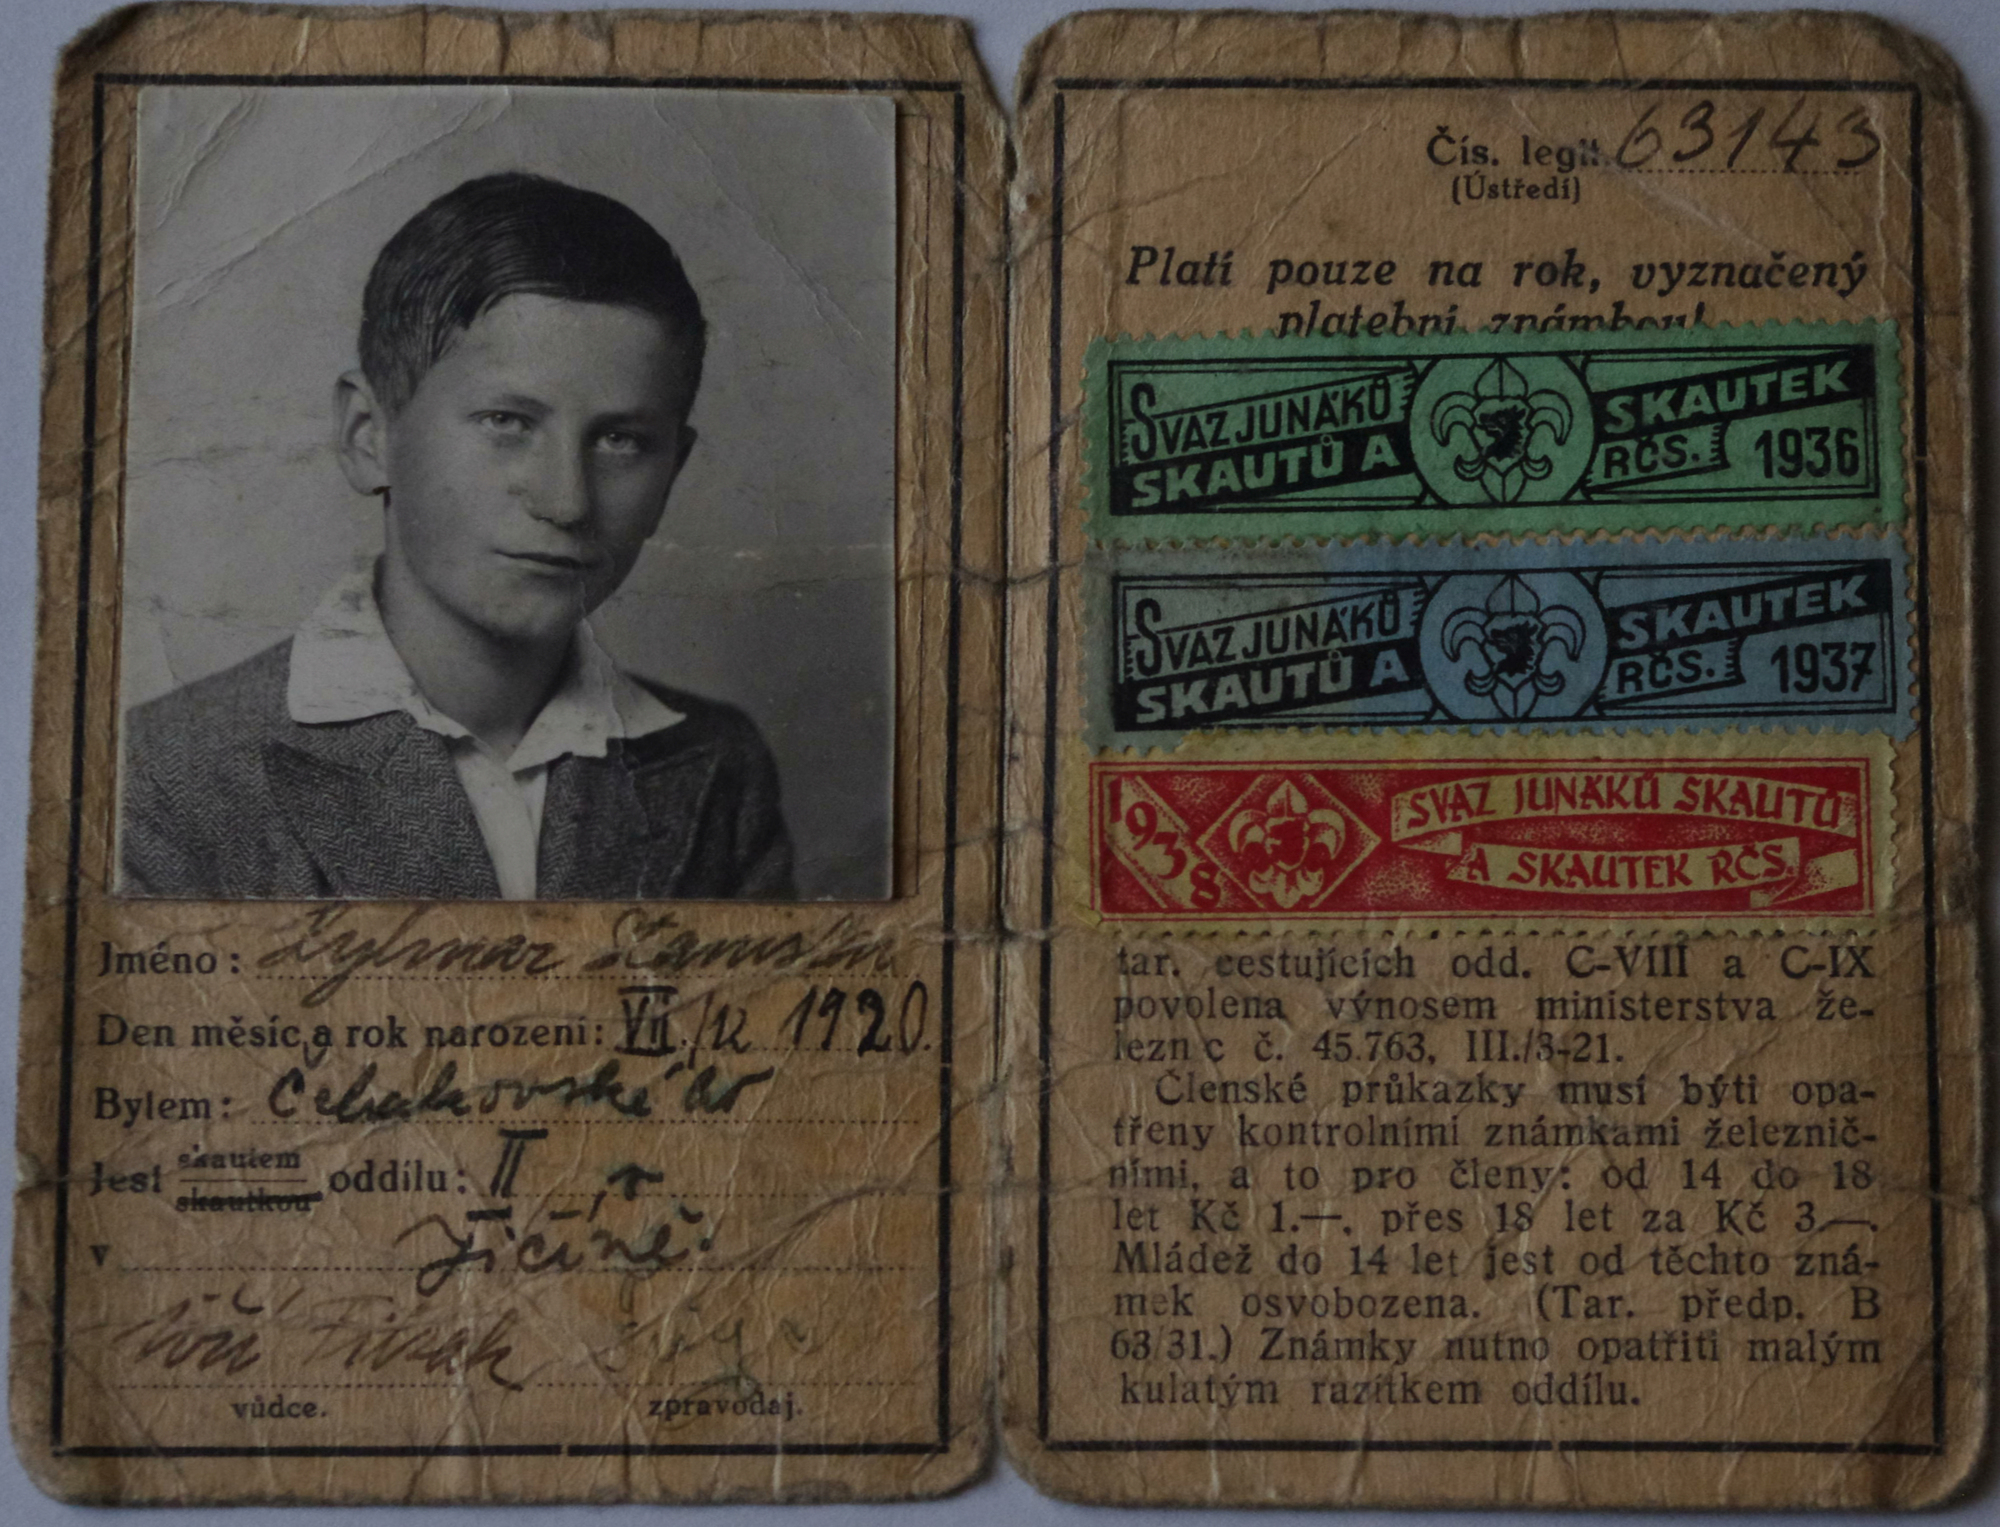 Jméno: Zylmar Stanislav
Den měsíc a rok narození: VII./12 1920.
Bylem:
Jest skautem oddílu: II
skautkou
v Jičíně.
Jiří
vůdce. zpravodaj.
Čís. legit. 63143
(Ústředí)
Platí pouze na rok, vyznačený
platební známkou!
SVAZ JUNÁKŮ SKAUTŮ A SKAUTEK RČS. 1936
SVAZ JUNÁKŮ SKAUTŮ A SKAUTEK RČS. 1937
1938 SVAZ JUNÁKŮ SKAUTŮ
A SKAUTEK RČS.
tar. cestujících odd. C-VIII a C-IX
povolena výnosem ministerstva že-
lezn c č. 45.763, III./3-21.
Členské průkazky musí býti opa-
třeny kontrolními známkami železnič-
ními, a to pro členy: od 14 do 18
let Kč 1.—, přes 18 let za Kč 3.—.
Mládež do 14 let jest od těchto zná-
mek osvobozena. (Tar. předp. B
63/31.) Známky nutno opatřiti malým
kulatým razítkem oddílu.